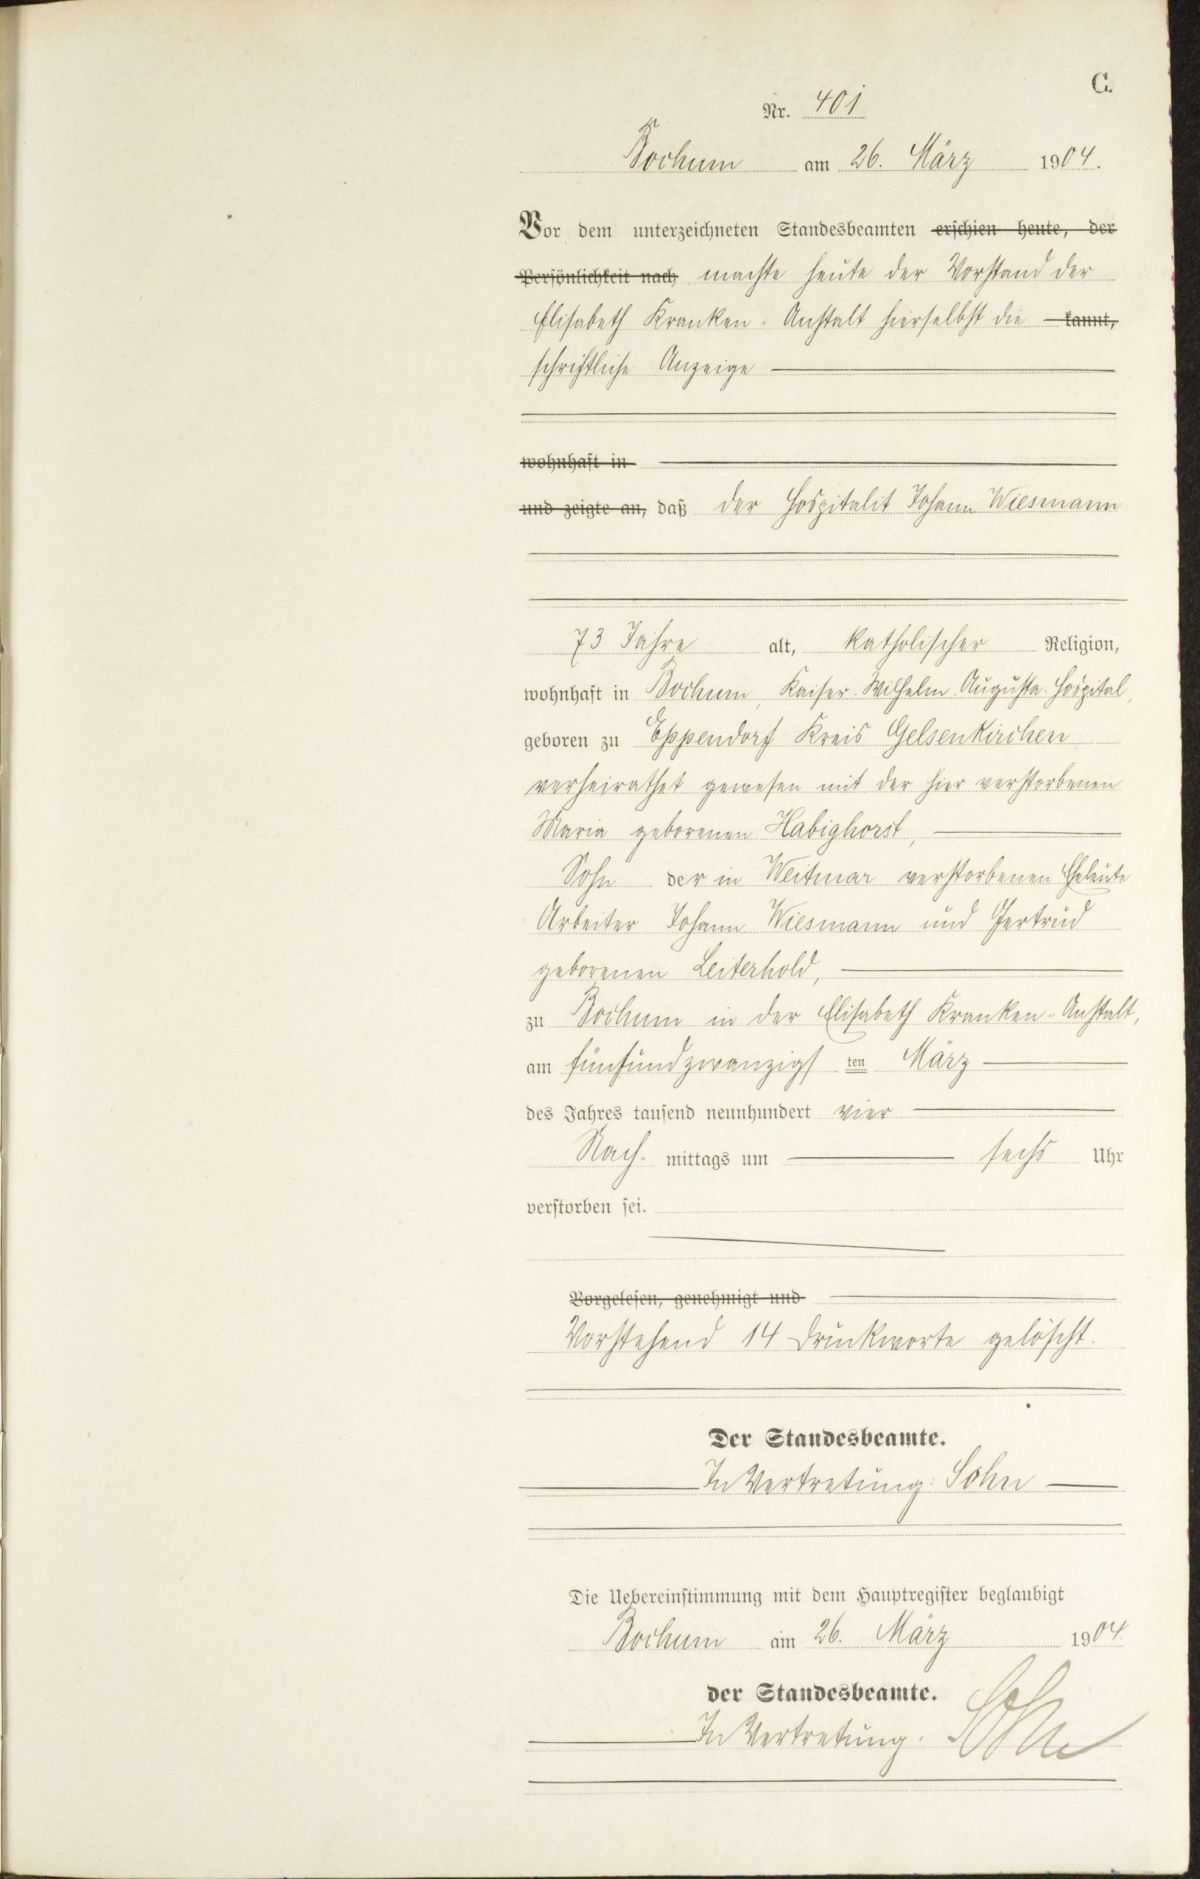 C.
Nr. 401
Bochum am 26. März 1904.
Vor dem unterzeichneten Standesbeamten erschien heute, der
Persönlichkeit nach machte heute der Vorstand der
Elisabeth Kranken-Anstalt hierselbst die kannt,
schriftliche Anzeige
wohnhaft in
und zeigte an, daß der Hospitalit Johann Wiesmann
73 Jahre alt, katholischer Religion,
wohnhaft in Bochum, Kaiser-Wilhelm-Augusta-Hospital,
geboren zu Eppendorf Kreis Gelsenkirchen
verheirathet gewesen mit der hier verstorbenen
Maria geborenen Habighorst,
Sohn der in Weitmar verstorbenen Eheleute
Arbeiter Johann Wiesmann und Gertrud
geborenen Leiterhold,
zu Bochum in der Elisabeth Kranken-Anstalt,
am fünfundzwanzigsten März
des Jahres tausend neunhundert vier
Nach- mittags um sechs Uhr
verstorben sei.
Vorgelesen, genehmigt und
Vorstehend 14 Druckworte gelöscht.
Der Standesbeamte.
In Vertretung: Sohn
Die Uebereinstimmung mit dem Hauptregister beglaubigt
Bochum am 26. März 1904.
der Standesbeamte.
In Vertretung: Sohn